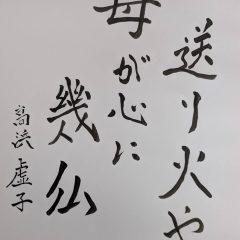 送り火や
母が心に
幾仏
高浜虚子